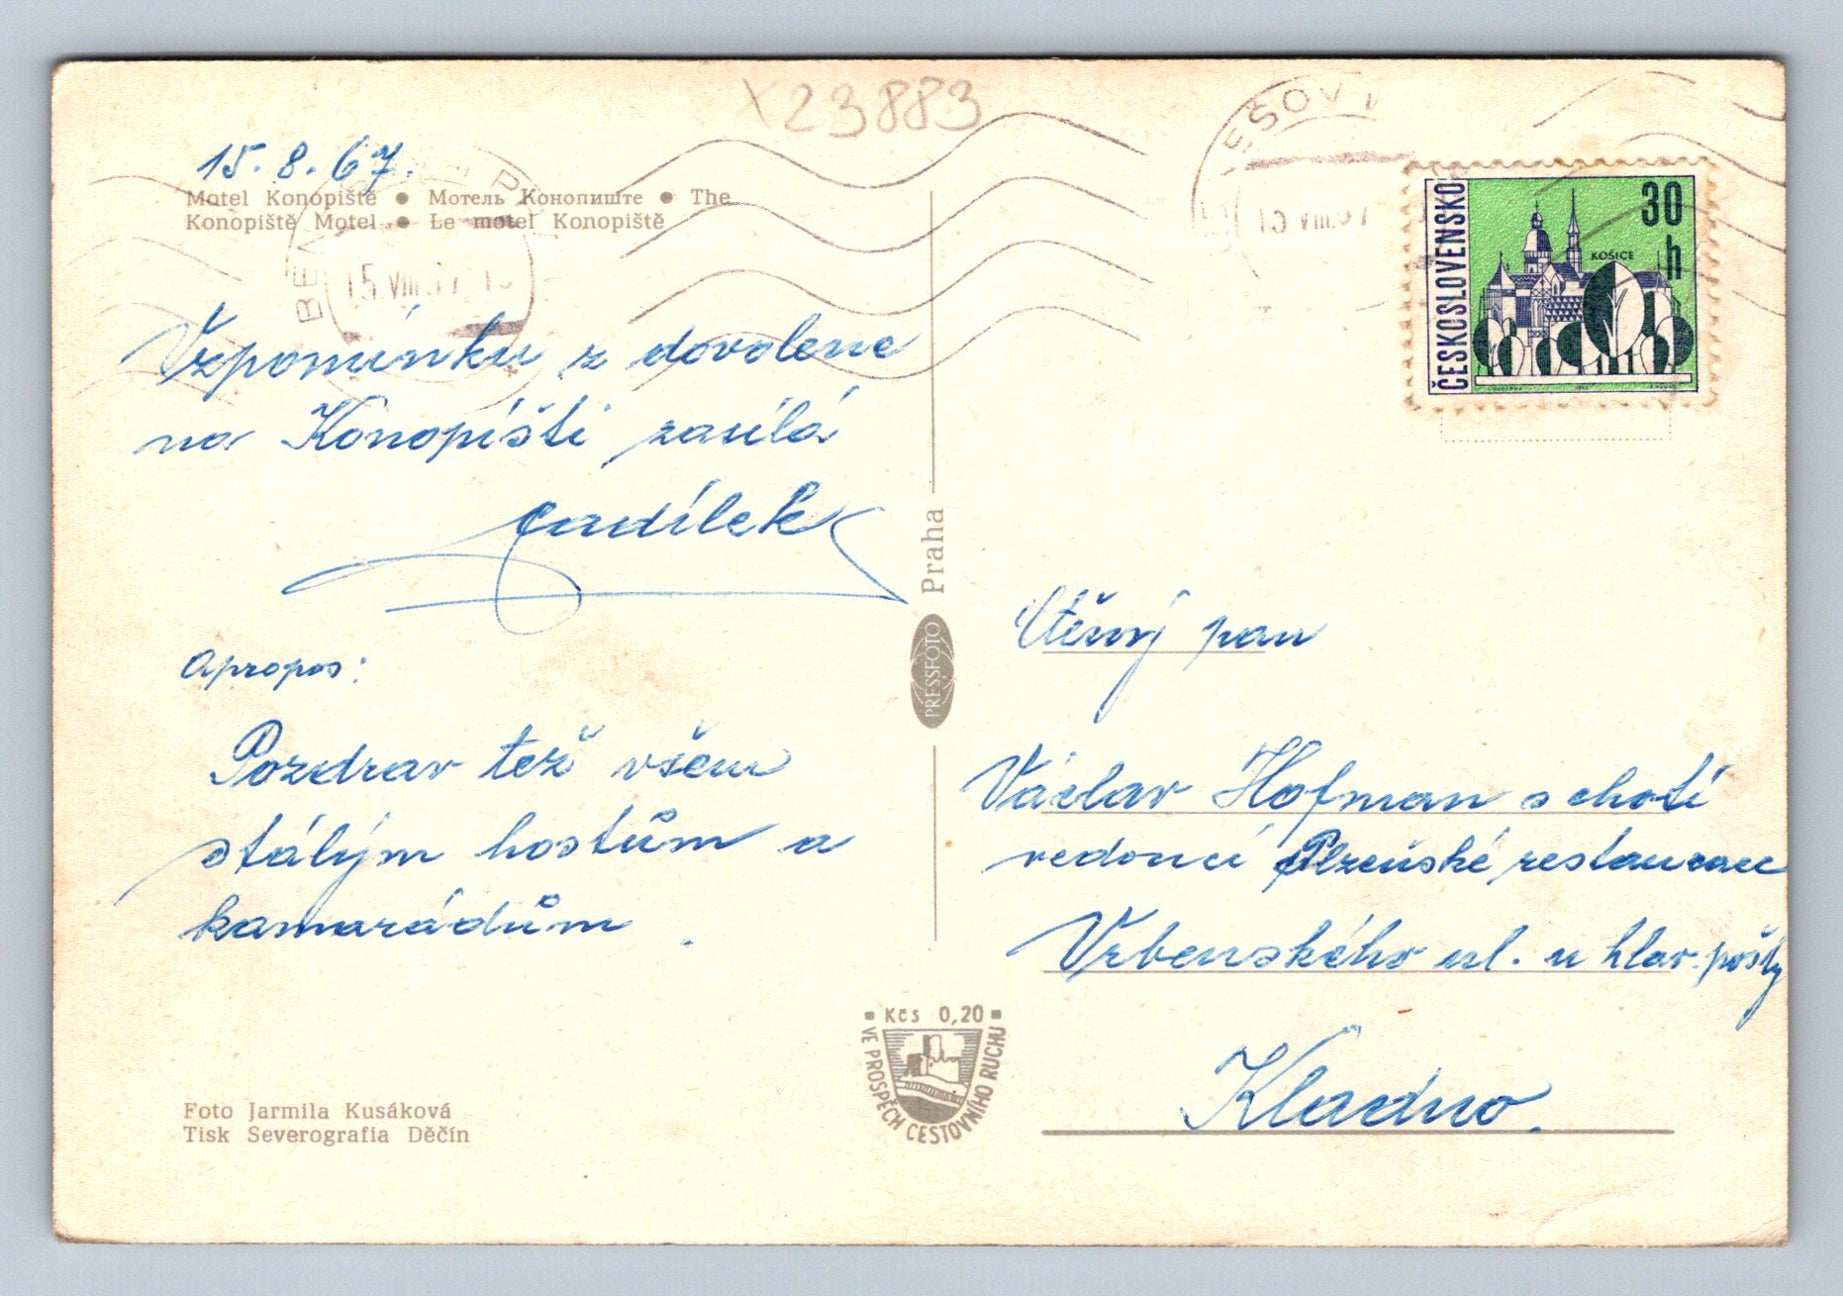 X23883
15.8.67.
Motel Konopiště ● Мотель Конопиште ● The
Konopiště Motel ● Le motel Konopiště
15.VIII.67
Vzpomínku z dovolene
na Konopišti zasílá
Apropos:
Pozdrav též všem
stálým hostům a
kamarádům.
Foto Jarmila Kusáková
Tisk Severografia Děčín
Praha
PRESSFOTO
Kčs 0,20
VE PROSPĚCH CESTOVNÍHO RUCHU
ČESKOSLOVENSKO
30
h
KOŠICE
pan
Václav Hofman s chotí
vedoucí Plzeňské restaurace
Vrbenského ul. u hlav. pošty
Kladno.